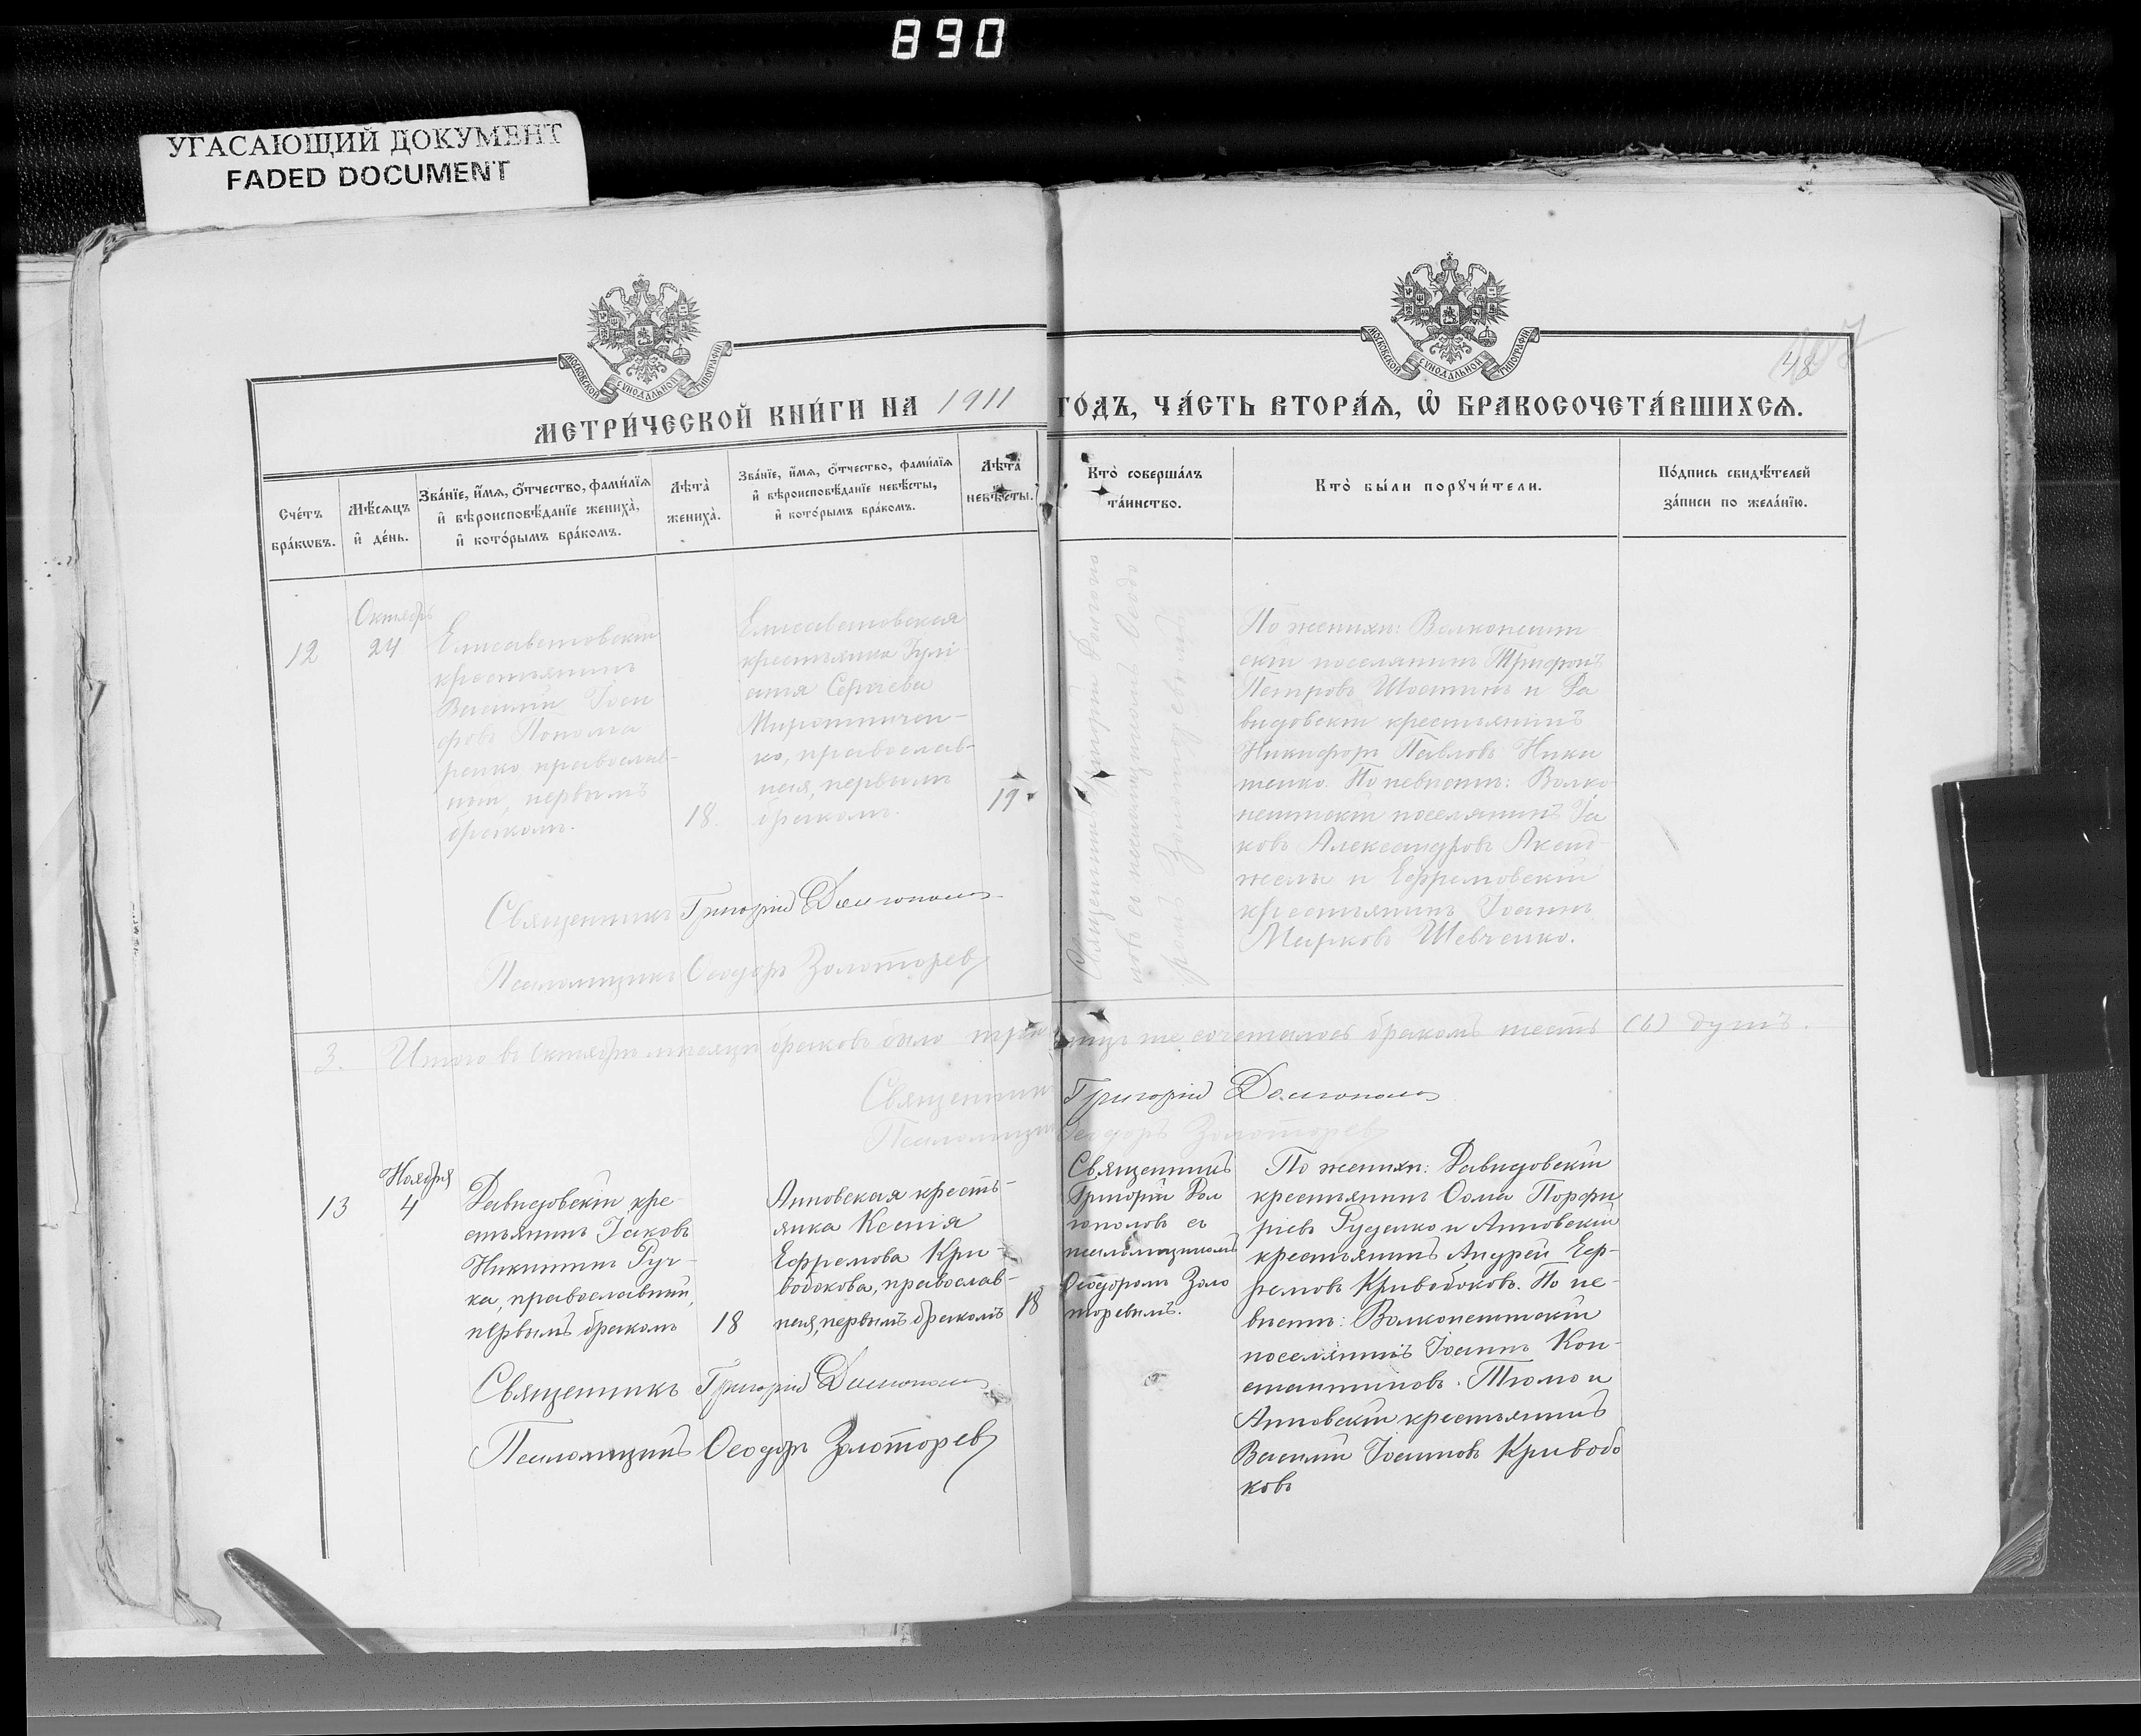 890
УГАСАЮЩИЙ ДОКУМЕНТ
FADED DOCUMENT
МОСКОВСКОЙ СѴНОДАЛЬНОЙ ТИПОГРАФІИ
МОСКОВСКОЙ СѴНОДАЛЬНОЙ ТИПОГРАФІИ
48
МЕТРИ́ЧЕСКОЙ КНИ́ГИ НА 1911 ГО́ДЪ, ЧА́СТЬ ВТОРА́Ѧ, Ѡ҆ БРАКОСОЧЕТА́ВШИХСѦ.
Сче́тъ
бра́кѡвъ.
Мѣ́сѧцъ
и҆ де́нь.
Зва́нїе, и҆́мѧ, ѻ҆́тчество, фами́лїѧ
и҆ вѣроисповѣ́данїе жениха̀,
и҆ кото́рымъ бра́комъ.
Лѣта̀
жениха̀.
Зва́нїе, и҆́мѧ, ѻ҆́тчество, фами́лїѧ
и҆ вѣроисповѣ́данїе невѣ́сты,
и҆ кото́рымъ бра́комъ.
Лѣта̀
невѣ́сты.
Кто̀ соверша́лъ
та́инство.
Кто̀ бы́ли порꙋчи́тели.
По́дпись свидѣ́телей
за́писи по жела́нїю.
12
Октябрь
24
Елисаветовскій
крестьянинъ
Василій Іоси
фовъ Понома
ренко православ-
ный, первымъ
бракомъ.
18.
Елисаветовская
крестьянка Іулі
анія Сергіева
Мирошничен-
ко, православ-
ная, первымъ
бракомъ.
19
Священникъ Григорій Долгопо
ловъ съ псаломщикомъ Ѳеодо
ромъ Золоторевымъ
По женихѣ: Волконешт
скій поселянинъ Трифонъ
Петровъ и Да
видовскій крестьянинъ
Никифоръ Павловъ Ники
тенко. По невѣстѣ: Волко
нештскій поселянинъ Іа
ковъ Александровъ
и Ефремовскій
крестьянинъ Іоаннъ
Марковъ Шевченко.
Священникъ Григорій Долгополов
Псаломщикъ Ѳеодоръ Золоторев
3. Итого въ Октябрѣ мѣсяцѣ браковъ было три въ нихъ же сочеталось бракомъ шесть (6) душъ.
Священникъ Григорій Долгополов
Псаломщикъ Ѳеодоръ Золоторев
13
Ноября
4
Давидовскій кре
стьянинъ Іаковъ
Никитинъ Руч-
ка, православный,
первымъ бракомъ
18
Анновская кресть-
янка Ксенія
Ефремова Кри-
вобокова, православ-
ная, первымъ бракомъ
18
Священникъ
Григорій Дол
гополовъ съ
псаломщикомъ
Ѳеодоромъ Золо
торевымъ.
По женихѣ: Давидовскій
крестьянинъ Ѳома Порфи
ріевъ Руденко и Анновскій
крестьянинъ Андрей Еф-
ремовъ Кривобоковъ. По не-
вѣстѣ: Волконештскій
поселянинъ Іоаннъ Кон-
стантиновъ Тюмо и
Анновскій крестьянинъ
Василій Іоанновъ Кривобо
ковъ
Священникъ Григорій Долгополов
Псаломщикъ Ѳеодоръ Золоторев